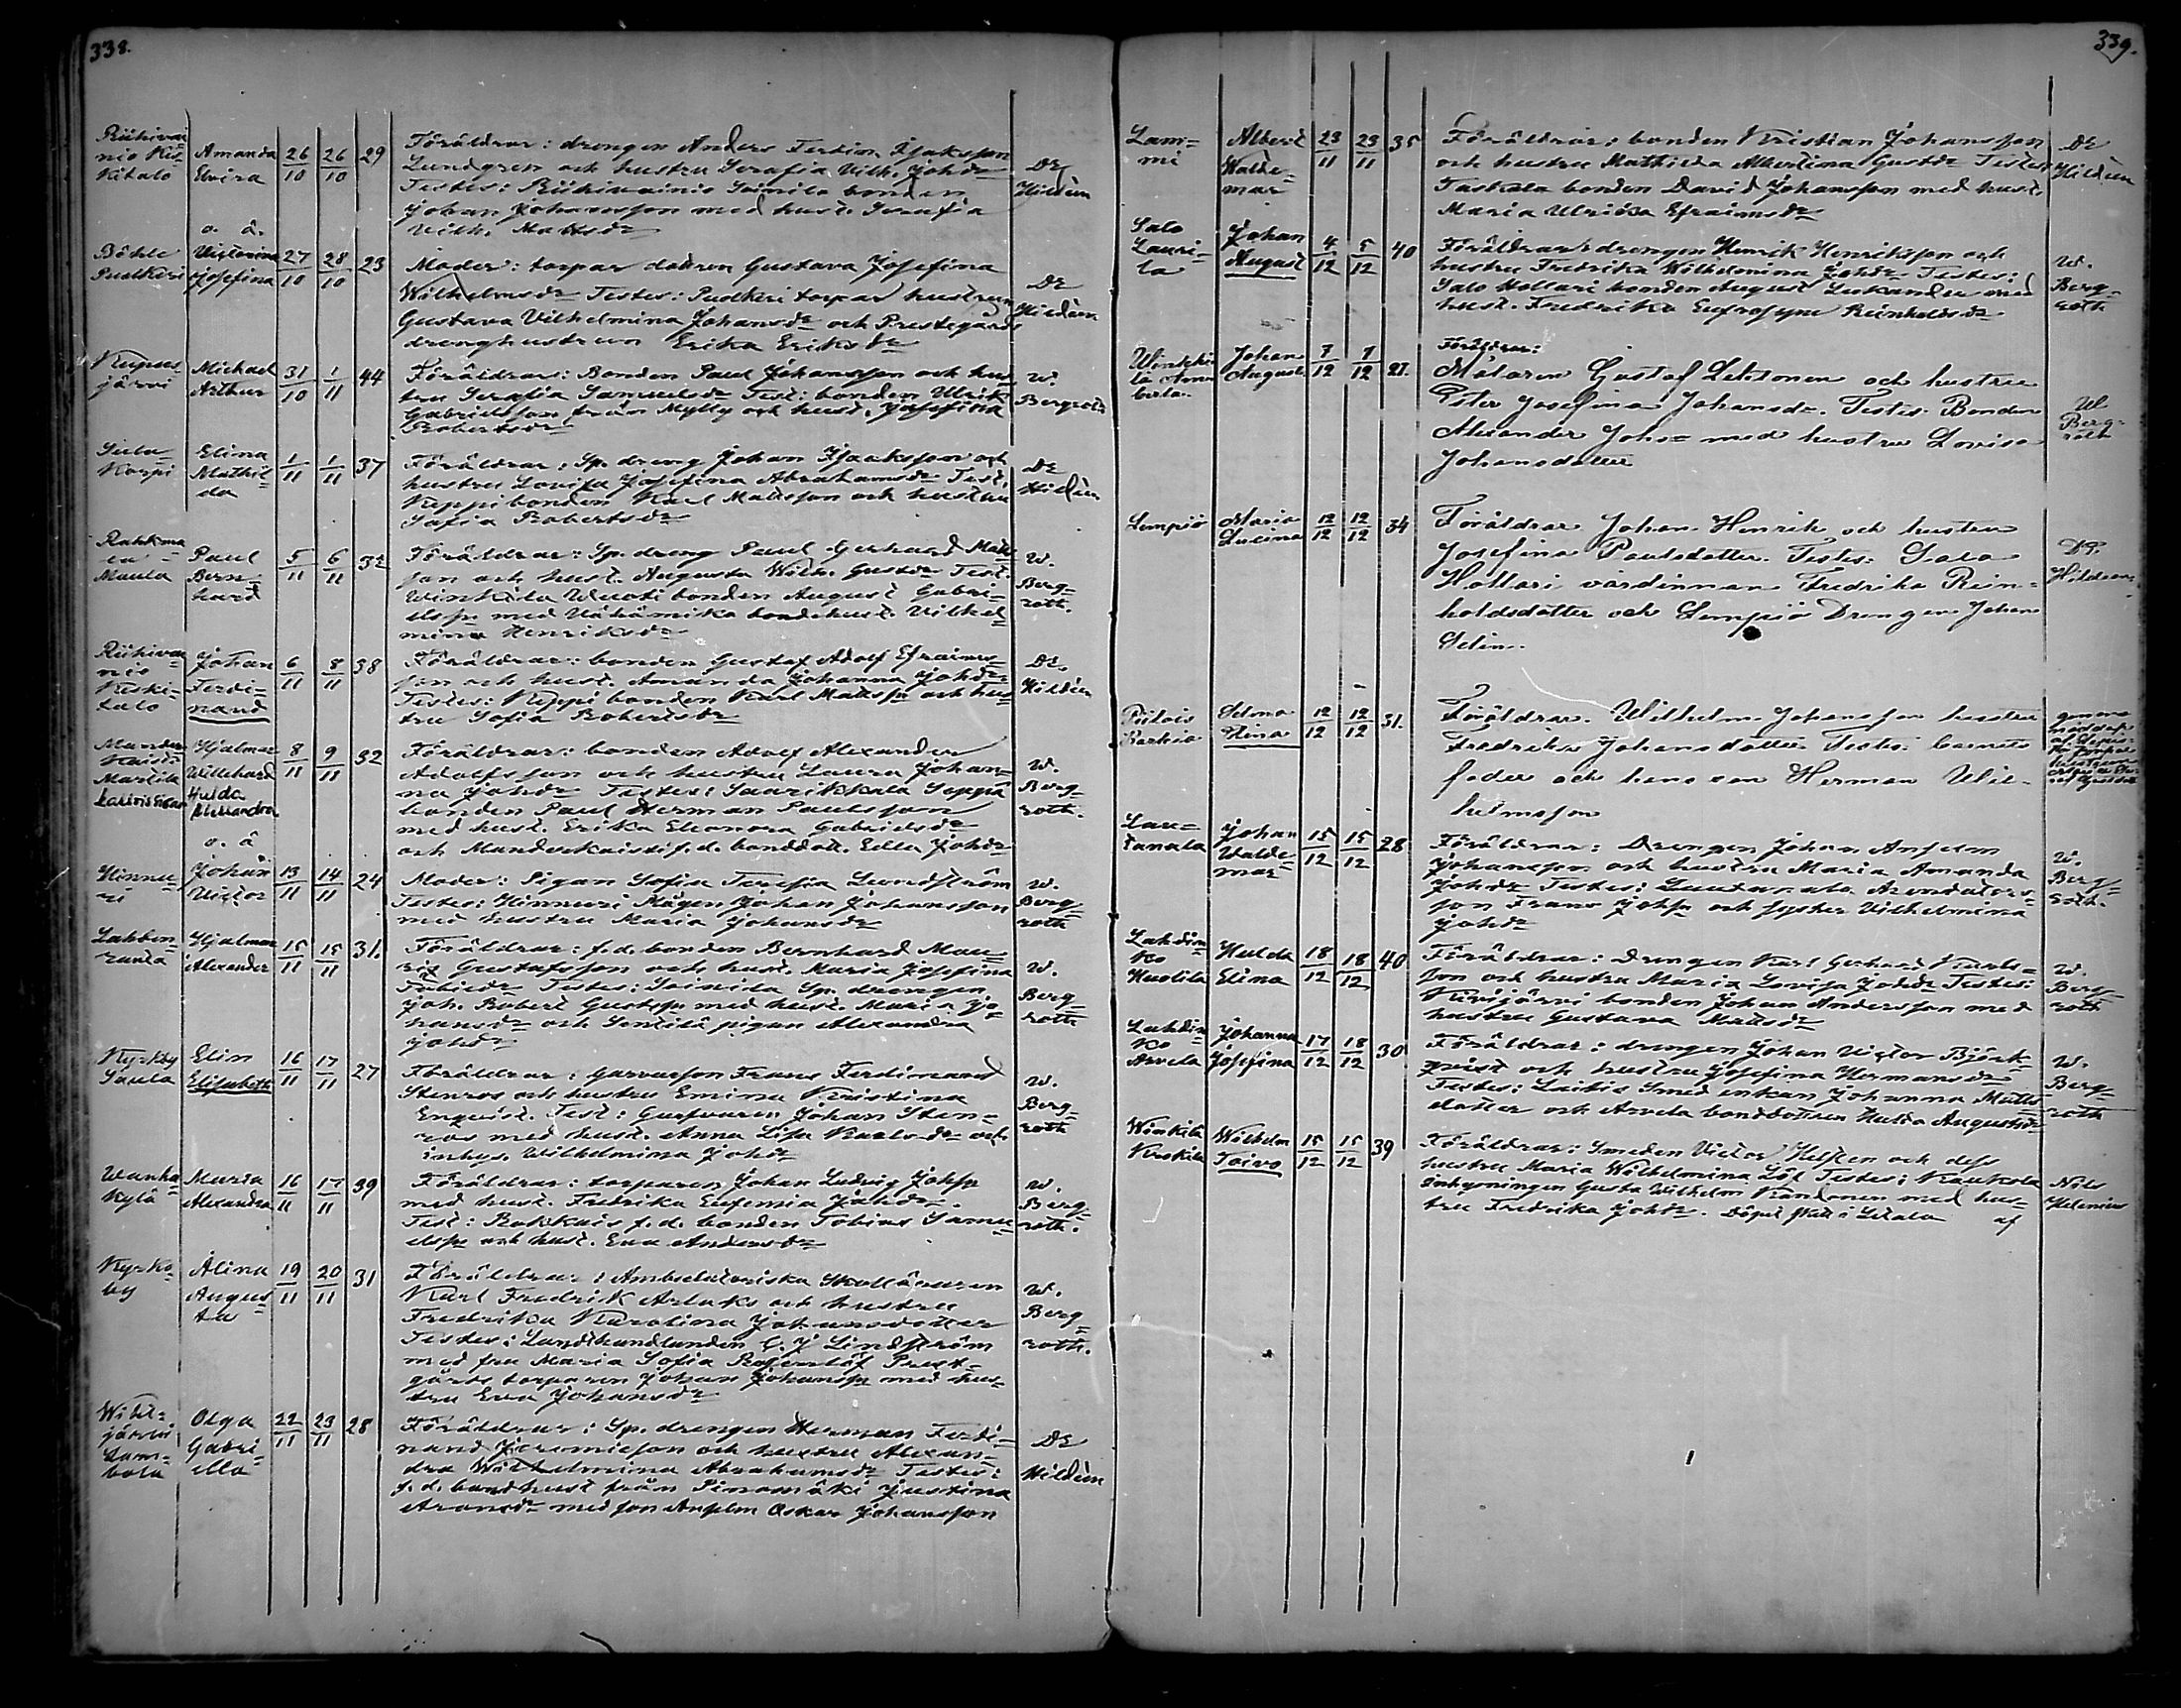 338.
Riihivai
nio Kis
Kitalo
Amanda
Elvira
26/10 26/10 29
Föräldrar: drengen Anders Ferdin. Isaksson
Lundgren och hustru Serafia Vilh. Johdr
Testes: Riihivainio Soinila bonden
Johan Johansson med hust. Serafia
Vilh. Mattsdr
DE
Hildèn
o. ä.
Böhle
Puolkeri
Victorina
Josefina
27/10 28/10 23
Moder: torpar dottren Gustava Josefina
Wilhelmsdr Testes: Puolkeri torpar hustrun
Gustava Vilhelmina Johansdr och Prestegårds
drenghustrun Erika Eriksdr
DE
Hildèn
järvi
Michael
Arthur
31/10 1/11 44
Föräldrar: Bonden Paul Johansson och hus
tru Serafia Samuelsdr Test: bonden Ulrik
Gabrielsson från Mylly och hust. Josefina
Robertsdr
W.
Bergroth
Sula
Korpi
Elina
Mathil
da
1/11 1/11 37
Föräldrar: Sp. dreng Johan Isaksson och
hustru Lovisa Josefina Abrahamsdr Test.
Keppi bonden Karl Mattsson och hustru
Sofia Robertsdr
DE
Hildèn
Maula
Paul
Bern-
hard
5/11 6/11 32
Föräldrar: Sp. dreng Paul Gerhard Matts
son och hust. Augusta Wilh. Gustdr Test.
Winkilä Wuoti bonden August Gabri-
elsn med Vähämiko bondehust. Vilhel
mina Henriksdr
W.
Berg-
roth.
Riihivai
nio
Kiski-
talo
Johan
Ferdi-
nand
6/11 8/11 38
Föräldrar: bonden Gustaf Adolf Efraims-
son och hust. Amanda Johanna Johdr
Testes: Keppi bonden Karl Mattssn och hus
tru Sofia Robertsdr
DE.
Hildèn
Mander
Kaisti
Marttila
Hjalmar
Willehard
Hulda
Alexandra
8/11 9/11 32
Föräldrar: bonden Adolf Alexander
Adolfsson och hustru Laura Johan-
na Johdr Testes: Saarikkala Soppi
bonden Paul Herman Paulsson
med hust. Erika Eleonora Gabrielsdr
och Manderkaisti f.d. bonddott. Edla Johdr
W.
Berg-
roth.
o. ä
Hinnu-
ri
Johan
Victor
13/11 14/11 24
Moder: Pigan Sofia Teresia Lundström
Testes: Hinnuri Mågen Johan Johansson
med hustru Maria Johansdr
W.
Berg-
roth
Lahden-
ranta
Hjalmar
Alexander
15/11 15/11 31.
Föräldrar: f.d. bonden Bernhard Mau-
ritz Gustafsson och hust. Maria Josefina
Tobiedr Testes: Soinila Sp. drengen
Joh. Robert Gustssn med hust. Maria Jo-
hansdr och Sontilä pigan Alexandra
Johdr
W.
Berg-
roth
Kyrkby
Saula
Elin
Elisabeth
16/11 17/11 27
Föräldrar: garvarson Frans Ferdinand
Stenros och hustru Emina Kristina
Enqvist. Test: Garfvaren Johan Sten-
ros med hust. Anna Lisa Karlsdr och
inhys. Wilhelmina Johdr
W.
Berg-
roth
Wanha-
kylä
Maria
Alexandra
16/11 17/11 39
Föräldrar: torparen Johan Ludvig Johssn
med hust. Fredrika Eufemia Johdr.
Test: Rokkais f.d. bonden Tobias Samu-
elsn och hust. Eva Andersdr
W.
Berg-
roth.
Kyrko-
by
Alina
Augus-
ta
19/11 20/11 31
Föräldrar: Ambulatoriska Skolläraren
Karl Fredrik Arlaks och hustru
Fredrika Karolina Johansdotter
Testes: Landthandlanden C. J Lindström
med fru Maria Sofia Rosenlöf Prest-
gårds torparen Johan Johanssn med hus-
tru Eva Johansdr
W.
Berg-
roth.
järvi
Olga
Gabri-
ella
22/11 23/11 28
Föräldrar: Sp. drengen Herman Ferdi-
nand Jeremiesson och hustru Alexan-
dra Wilhelmina Abrahamsdr Testes:
f.d. bondhust från Pinomäki Justina
Aronsdr med son Anselm Oskar Johansson
DE
Hildèn
339.
Lam-
mi
Albert
Walde-
mar
23/11 23/11 35
Föräldrar: bonden Kristian Johansson
och hustru Mathilda Albertina Gustdr Testes
Taskala bonden David Johansson med hust.
Maria Ulrika Efraimsdr
DE
Hildèn
Salo
Lauri-
la
Johan
August
4/12 5/12 40
Föräldrar: drengen Henrik Henriksson och
hustru Fredrika Wilhelmina Johdr Testes:
Salo Hollari bonden August Leskander med
hust. Fredrika Eufrosyne Reinholdsdr
W.
Berg-
roth
Johan
August
7/12 7/12 27.
Föräldrar:
Målaren Gustaf Lehtonen och hustru
Ester Josefina Johansdr. Testes. Bonden
Alexander Johs= med hustru Lovisa
Johansdotter
W
Berg-
roth
Lempiö
Maria
Lusina
12/12 12/12 34
Föräldrar Johan Henrik och hustru
Josefina Paulsdotter. Testes: Salo
Hollari värdinnan Fredrika Rein-
holdsdotter och Lempiö Drengen Johan
Selin.
DE.
Hildèn
Piilois
Selma
Hina
12/12 12/12 31.
Föräldrar. Wilhelm Johansson hustru
Fredrika Johansdotter. Testes: barnets
fader och hans son Herman Wil-
helmsson
Lau-
tanala
Johan
Walde-
mar
15/12 15/12 28
Föräldrar: Drengen Johan Anselm
Johansson och hustru Maria Amanda
Johdr Testes: Lautanala Arendators-
son Frans Johssn och syster Vilhelmina
Johdr
W.
Berg-
roth.
Lahdin-
ko
Huolila
Hulda
Elina
18/12 18/12 40
Föräldrar: Drengen Karl Gerhard Karls-
son och hustru Maria Lovisa Johdr Testes:
Kivijärvi bonden Johan Andersson med
hustru Gustava Mattsdr
W.
Berg-
roth
Lahdin
ko
Arvela
Johanna
Josefina
17/12 18/12 30
Föräldrar: drengen Johan Victor Björk-
qvist och hustru Josefina Hermansdr
Testes: Laitis Smed enkan Johanna Matts-
dotter och Arvela bonddottren Hulda Augustsdr
W.
Berg-
roth
Winkilä
Keskilä
Wilhelm
Toivo
15/12 15/12 39
Föräldrar: Smeden Victor Helsten och dess
hustru Maria Wilhelmina Löf Testes: Kaukola
Inhysningen Gusta Wilhelm Randonen med hus-
tru Fredrika Johdr. af
Nils
Helenius